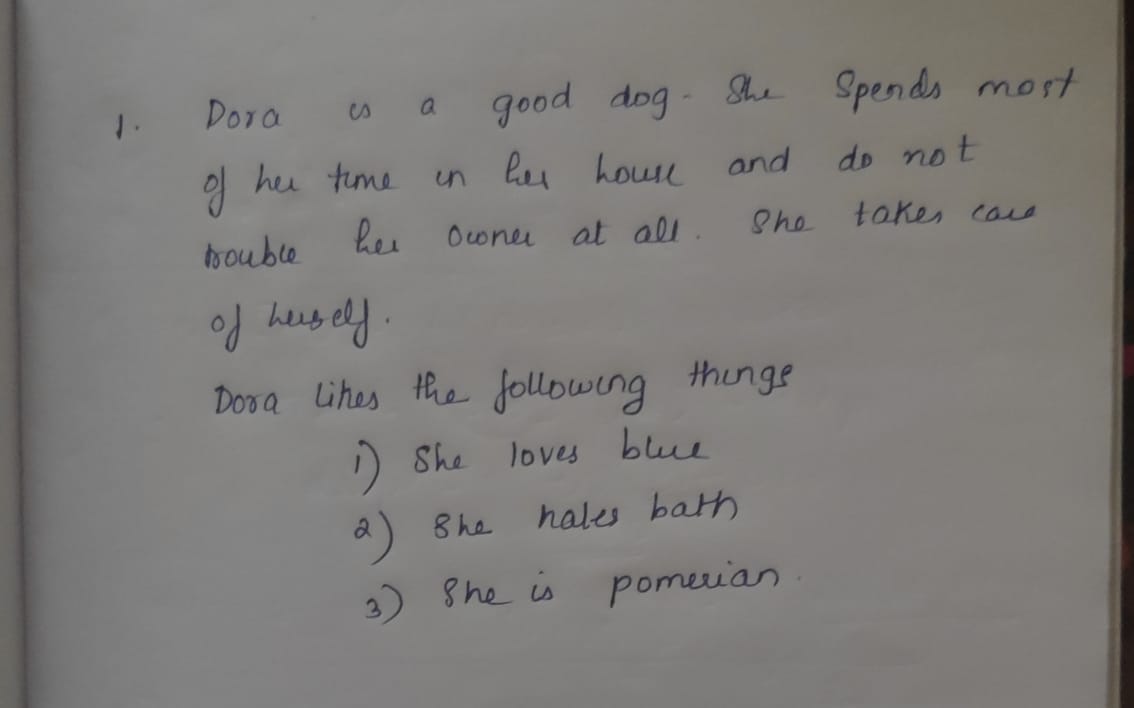 1. Dora is a good dog. She Spends most
of her time in her house and do not
trouble her Owner at all. She takes care
of herself.
Dora likes the following things
1) She loves blue
2) She hates bath
3) She is pomerian.